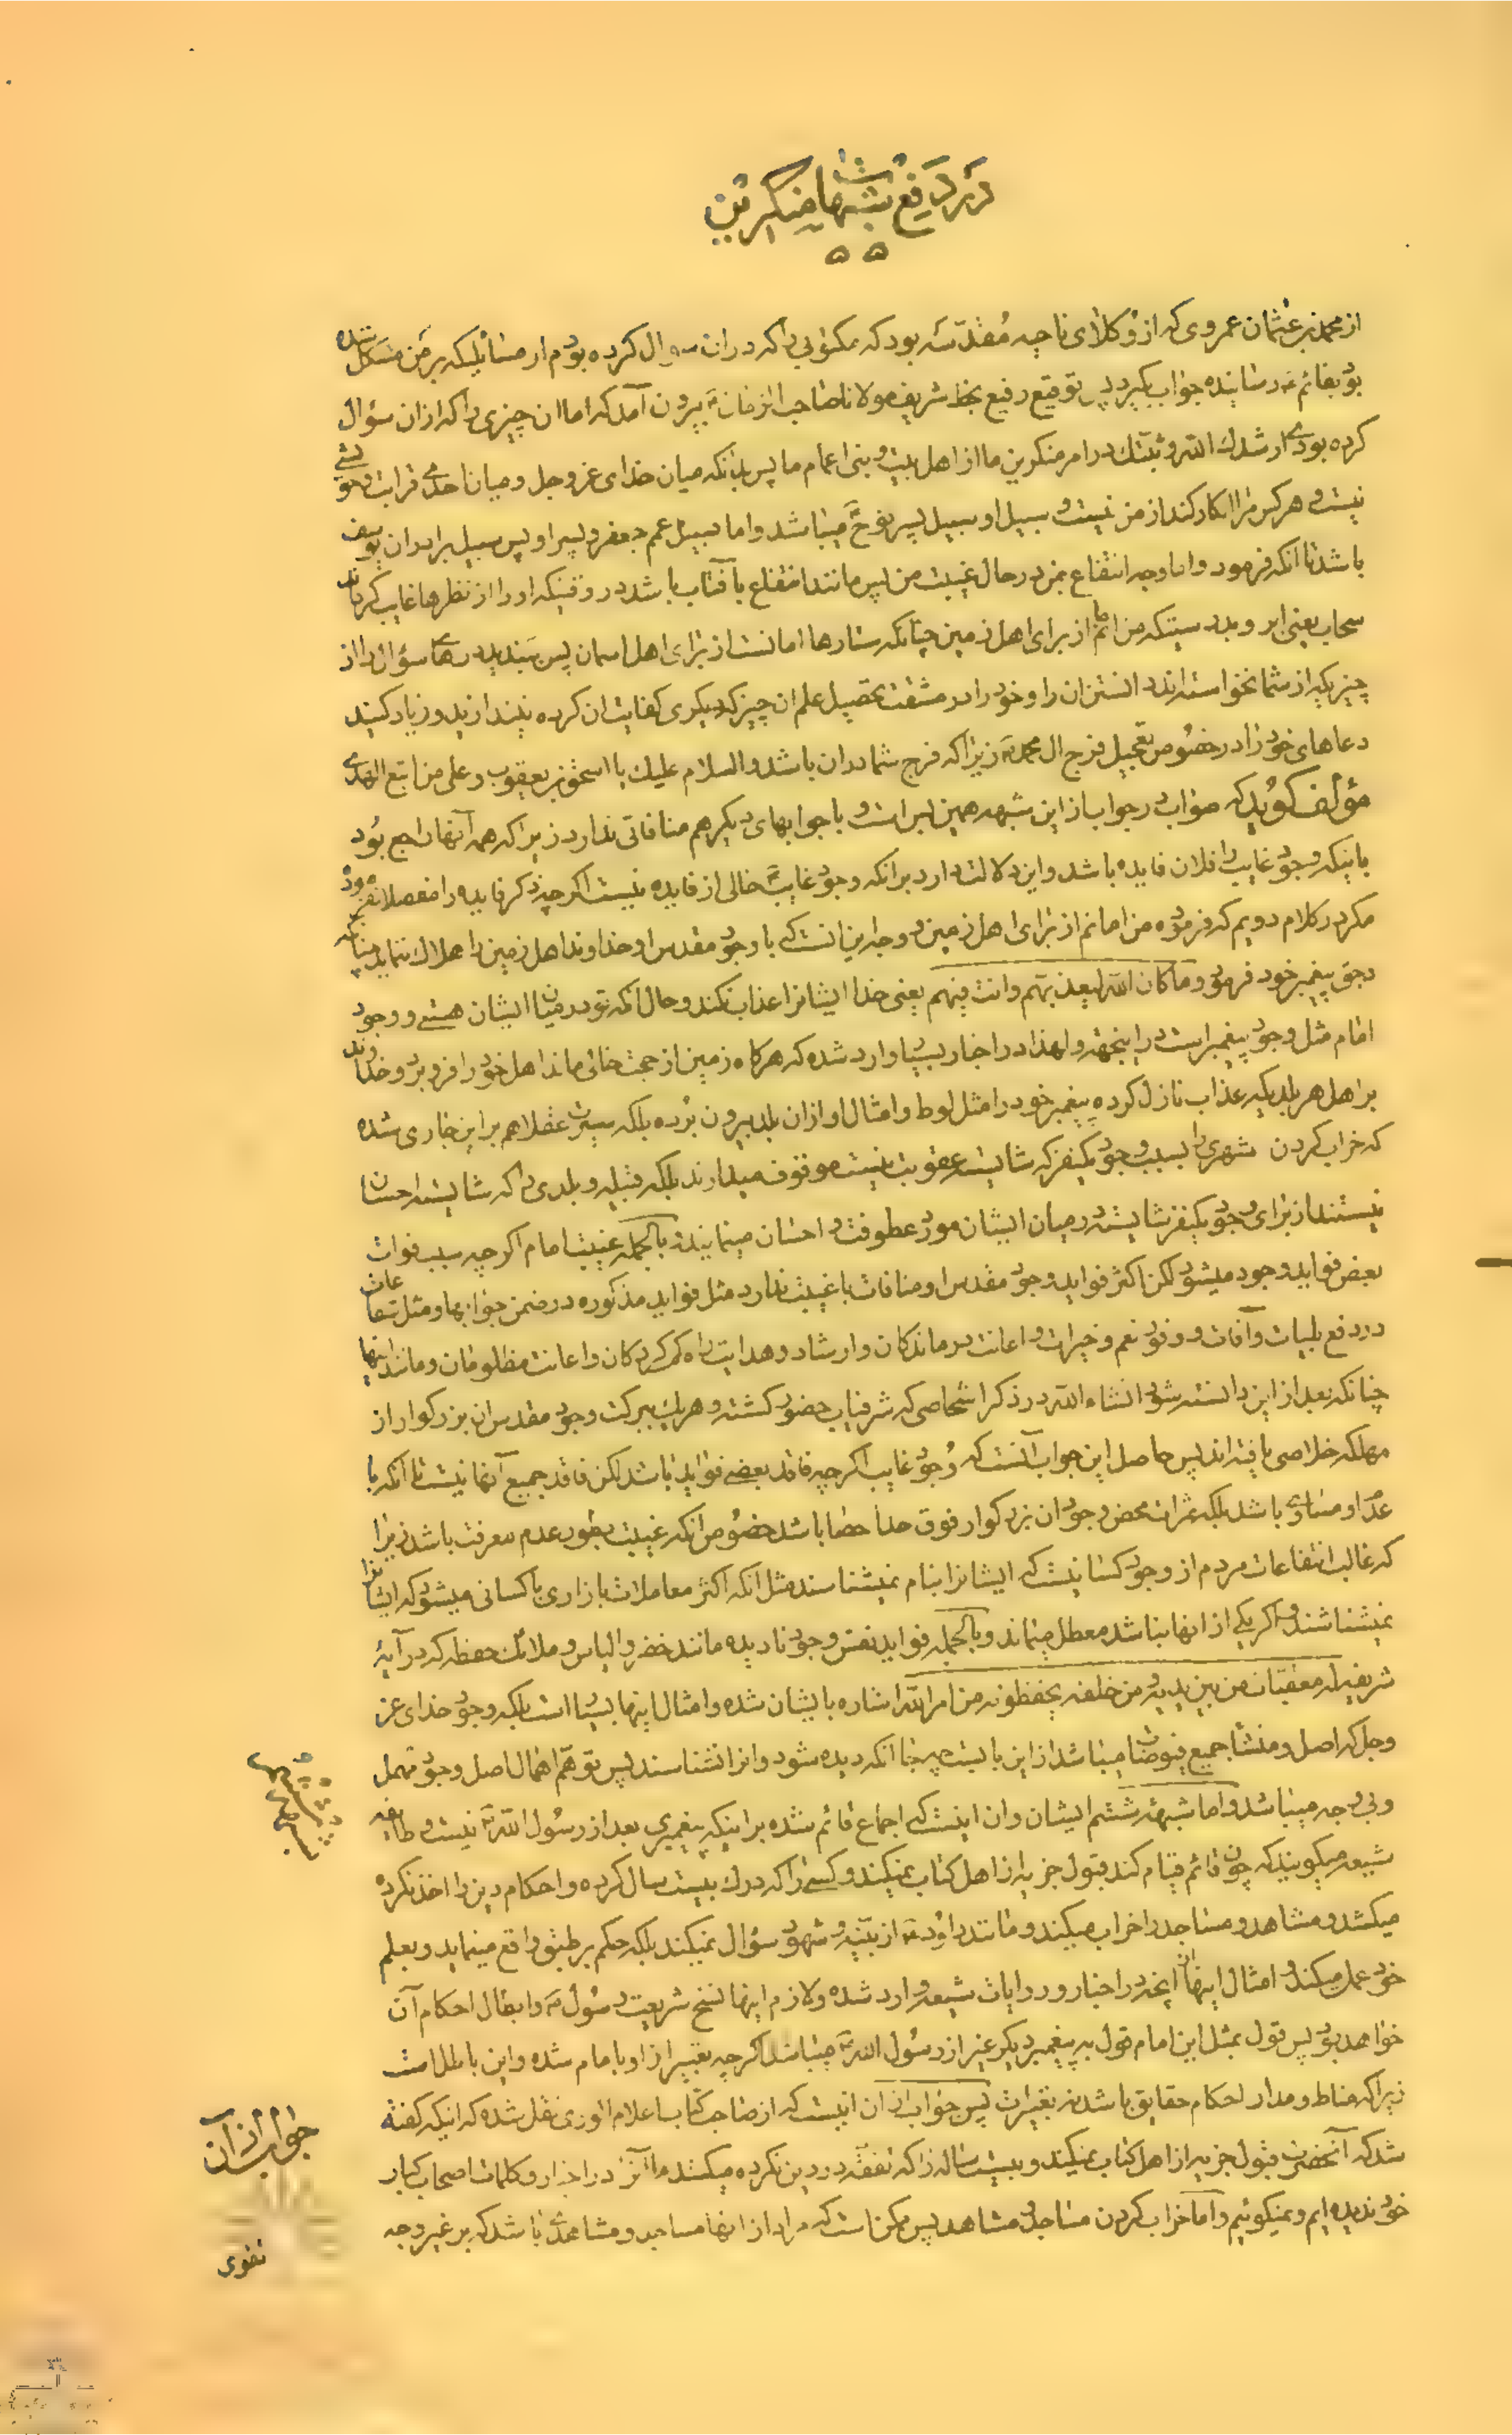 در دفع شبهات منکرین
از محمد بن عثمان عمروی که از وکلای ناحیه مقدّسه بود که مکتوبی را که در ان سوال کرده بودم از مسائلیکه بر من مشکل شده
بود بقائم ع رسانیده جواب بکیرد پس توقیع رفیع بخط شریف مولانا صاحب الزمان ع بیرون آمد که اما ان چیزی را که از ان سؤال
کرده بودی ارشدك الله و ثبتك در امر منکرین ما از اهل بیت و بنی اعمام ما پس بدانکه میان خدای عز و جل و میان احدی قرابت و خویشی
نیست و هرکس مرا انکار کند از من نیست و سبیل او سبیل پسر نوح ع میباشد و اما سبیل عمم جعفر و پسر او پس سبیل برادران یوسف
باشد تا انکه فرمود و اما وجه انتفاع بمن در حال غیبت من پس مانند انتفاع بآفتاب باشد در وقتیکه او را از نظرها غایب کرداند
سحاب یعنی ابر و بدرستیکه من امانم از برای اهل زمین چنانکه ستارها امانست از برای اهل اسمان پس ببندید درهای سؤال را از
چیزیکه از شما نخواسته اند دانستن ان را و خود را در مشقت تحصیل علم ان چیز که دیکری کفایت ان کرده نیندازید و زیاد کنید
دعاهای خود را در خصوص تعجیل فرج ال محمد ع زیرا که فرج شما در ان باشد والسلام علیك یا اسحق بن یعقوب و علی من اتبع الهدی
مؤلف کوید که صواب در جواب از این شبهه همین بس است و با جوابهای دیکر هم منافاتی ندارد زیرا که همه آنها راجع بود
باینکه وجود غایب را فلان فایده باشد و این دلالت دارد بر انکه وجود غایب ع خالی از فایده نیست اکر چه ذکر فایده را مفصلا نفرمود
مکر در کلام دویم که فرموده من امانم از برای اهل زمین و وجه این انست که با وجود مقدس او خداوند اهل زمین را هلاك ننماید چنانکه
در حق پیغمبر خود فرمود و ما کان الله لیعذبهم و انت فیهم یعنی خدا ایشانرا عذاب نکند و حال آنکه تو در میان ایشان هستی و وجود
امام مثل وجود پیغمبر است در اینجهة و لهذا در اخبار بسیار وارد شده که هرکاه زمین از حجت خالی ماند اهل خود را فرو برد و خداوند
بر اهل هر بلدیکه عذاب نازل کرده پیغمبر خود را مثل لوط و امثال او از ان بلد بیرون برده بلکه سیرت عقلا هم بر این جاری شده
که خراب کردن شهری را بسبب وجود یکنفر که شایسته عقوبت نیست موقوف میدارند بلکه قبیله و بلدی را که شایسته احسان
نیستند از برای وجود یکنفر شایسته در میان ایشان مورد عطوفت و احسان مینمایند و بالجمله غیبت امام اکر چه سبب فوات
بعض فواید وجود میشود لکن اکثر فواید وجود مقدس او منافات با غیبت ندارد مثل فواید مذکوره در ضمن جوابها و مثل شفاعات
در دفع بلیات و آفات و وفود نعم و خیرات و اعانت درماندکان و ارشاد و هدایت راه کم کردکان و اعانت مظلومان و مانند اینها
چنانکه بعد از این دانسته شود انشاء الله در ذکر اشخاصی که شرفیاب حضور کشته و هریك ببرکت وجود مقدس ان بزرکوار از
مهلکه خلاصی یافته اند پس حاصل این جواب آنست که وجود غایب اکر چه فاقد بعضی فواید باشد لکن فاقد جمیع آنها نیست تا آنکه با
عدم او مساوی باشد بلکه ثمرات محض وجود ان بزرکوار فوق حد احصا باشد خصوص انکه غیبت بطور عدم معرفت باشد زیرا
که غالب انتفاعات مردم از وجود کسانیست که ایشانرا بنام نمیشناسند مثل انکه اکثر معاملات بازاری با کسانی میشود که ایشانرا
نمیشناسند و اکر یکی از انها نباشد معطل میمانند و بالجمله فواید نفس وجود نادیده مانند خضر و الیاس و ملائکه حفظه که در آیهٔ
شریفه له معقبات من بین یدیه و من خلفه یحفظونه من امر الله اشاره بایشان شده و امثال اینها بسیار است بلکه وجود خدای عز
و جل که اصل و منشأ جمیع فیوضات میباشد از این بابست چه جا انکه دیده شود و انرا نشناسند پس توهم اهمال اصل وجود مهمل
و بی وجه میباشد و اما شبههٔ ششم ایشان و ان اینست که اجماع قائم شده بر اینکه پیغمبری بعد از رسول الله ص نیست و طایفه
شیعه میکویند که چون قائم قیام کند قبول جزیه از اهل کتاب نمیکند و کسی را که درك بیست سال کرده و احکام دین را اخذ نکرده
میکشد و مشاهد و مساجد را خراب میکند و مانند داود ع از بینه و شهود سؤال نمیکند بلکه حکم بر طبق واقع مینماید و بعلم
خود عمل میکند و امثال اینها از آنچه در اخبار و روایات شیعه وارد شده و لازم اینها نسخ شریعت رسول ص و ابطال احکام آن
خواهد بود پس قول بمثل این امام قول به پیغمبر دیکر غیر از رسول الله ص میباشد اکر چه تعبیر از او بامام شده و این باطل است
زیرا که مناط و مدار احکام حقایق باشد نه تعبیرات پس جواب از ان اینست که از صاحب کتاب اعلام الوری نقل شده که اینکه کفته
شد که آنحضرت قبول جزیه از اهل کتاب نمیکند و بیست ساله را که تفقه در دین نکرده میکشد ما آنرا در اخبار و کلمات اصحاب کبار
خود ندیده ایم و نمیکوئیم و اما خراب کردن مساجد و مشاهد پس ممکن است که مراد از انها مساجد و مشاهدی باشد که بر غیر وجه
شبههٔ ششم
جواب از آن
تقوی